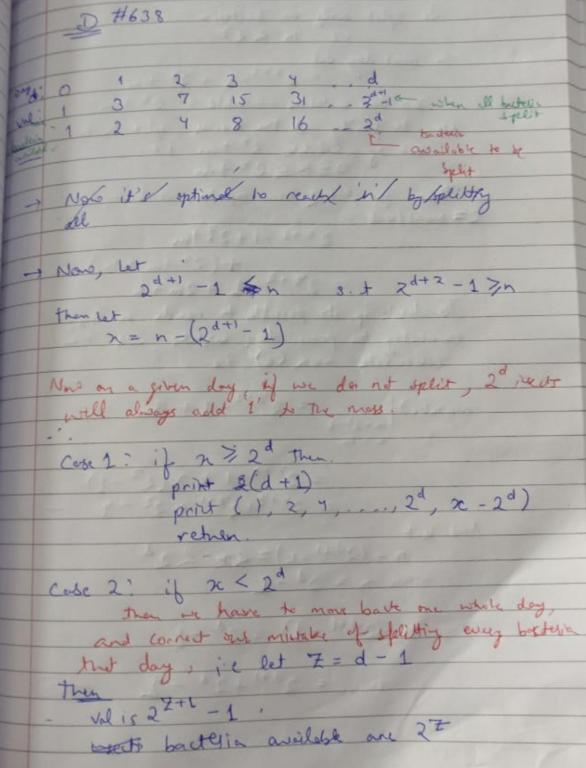 D #638
day: 0 1 2 3 4 .. d
val: 1 3 7 15 31 .. 2^{d+1} - 1 ← when all bacteria split
bacteria available: 1 2 4 8 16 .. 2^d
bacteria
available to be
split
→ Now it's optimal to reach 'n' by splitting
all
→ Now, let
2^{d+1} - 1 ≤ n s.t 2^{d+2} - 1 ≥ n
then let
x = n - (2^{d+1} - 1)
Now on a given day, if we do not split, 2^d
will always add '1' to the mass.
∴
Case 1: if x ≥ 2^d then
print (d+1)
print (1, 2, 4, ....., 2^d, x - 2^d)
return.
Case 2: if x < 2^d
then we have to move back one whole day,
and correct our mistake of splitting every bacteria
that day, i.e let Z = d - 1
Then
val is 2^{Z+1} - 1 .
bacteria available are 2^Z